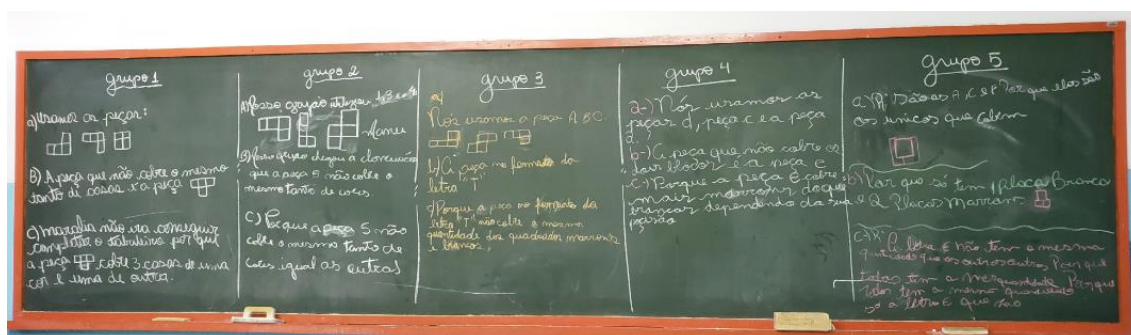 grupo 1
a) Usamos as peças:
B) A peça que não cobre o mesmo
tanto de casas é a peça
C) maralia não ira conseguir
completar o tabuleiro por que
a peça cobre 3 casas de uma
cor e uma de outra.
grupo 2
A) Nosso grupo
B) Nosso grupo chegou a
que a peça 5 não colbe o
mesmo tanto de cores
C) Porque a peça 5 não
colbe o mesmo tanto de
cores igual as outras
grupo 3
a)
Nós usamos a peça A B C.
b) A peça no formato da
letra "T"
c) Porque a peça no formato da
letra "T" não cobre a mesma
quantidade dos quadrados marrons
e brancos,
grupo 4
a-) Nós usamos as
peças d, peça c e a peça
a.
b-) A peça que não cobre os
é a peça e
c-) Porque a peça E cobre
mais marrons doque
brancas dependendo da sua
posisão
grupo 5
a) R: São as A, C e Por que elas são
as unicas que cabem
b) Por que só tem 1 placa Branca
e 2 Placas Marran.
c) R: A letra E não tem a mesma
que os outros Porque
todas tem a Porque
todas tem a mesma
só a letra E que não